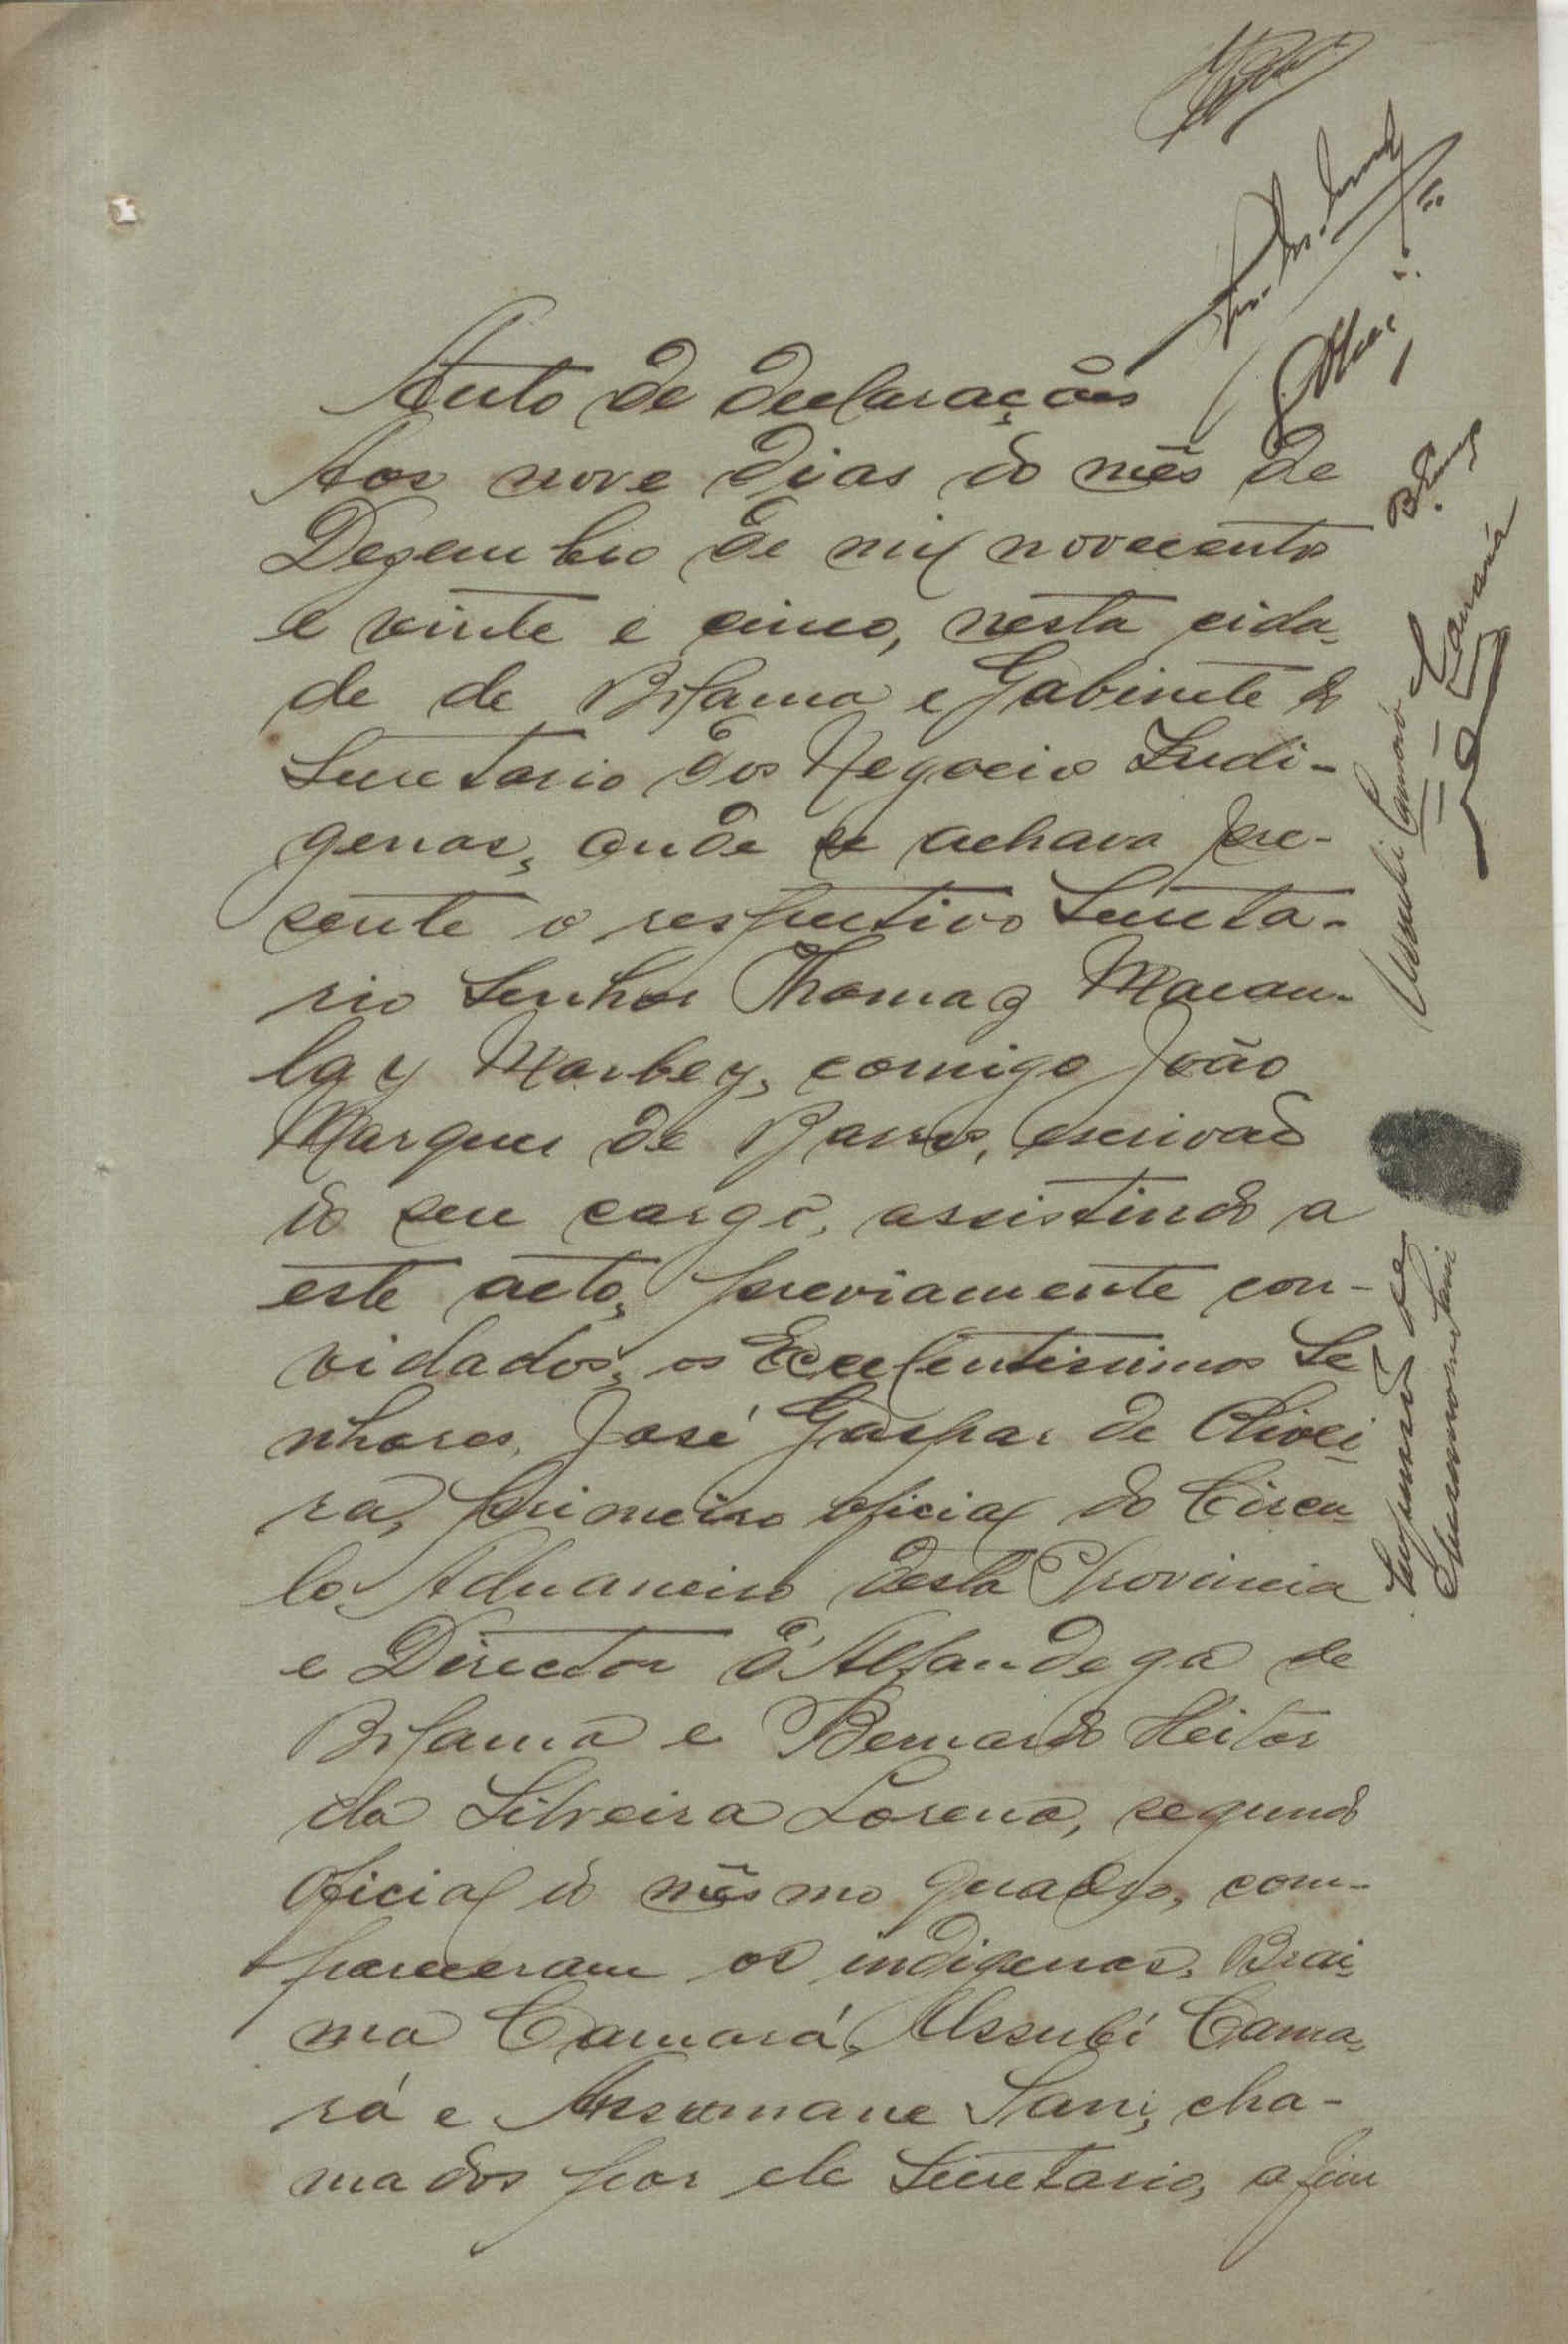 Auto de declarações
Aos nove dias do mês de
Dezembro de mil novecentos
e vinte e cinco, nesta cida-
de de Bolama e Gabinete do
Secretario dos Negocios Indi-
genas, onde se achava pre-
sente o respectivo Secreta-
rio Senhor Thomaz Macau-
lay Marbey, comigo João
Marques de Barros, escrivão
do seu cargo, assistindo a
este acto, previamente con-
vidados, os Excelentissimos Se
nhores, José Gaspar de Olivei-
ra, primeiro oficial do Circu-
lo Aduaneiro desta Provincia
e Director d'Alfandega de
Bolama e Bernardo Heitor
da Silveira Lorena, segundo
oficial do mêsmo quadro, com-
pareceram os indigenas, Brai-
ma Camará, Ussubí Cama-
rá e Assumane Sani, cha-
mados por ele Secretario, a fim
Ussubi Camará
Camará
Impressão de
Assumane Sani